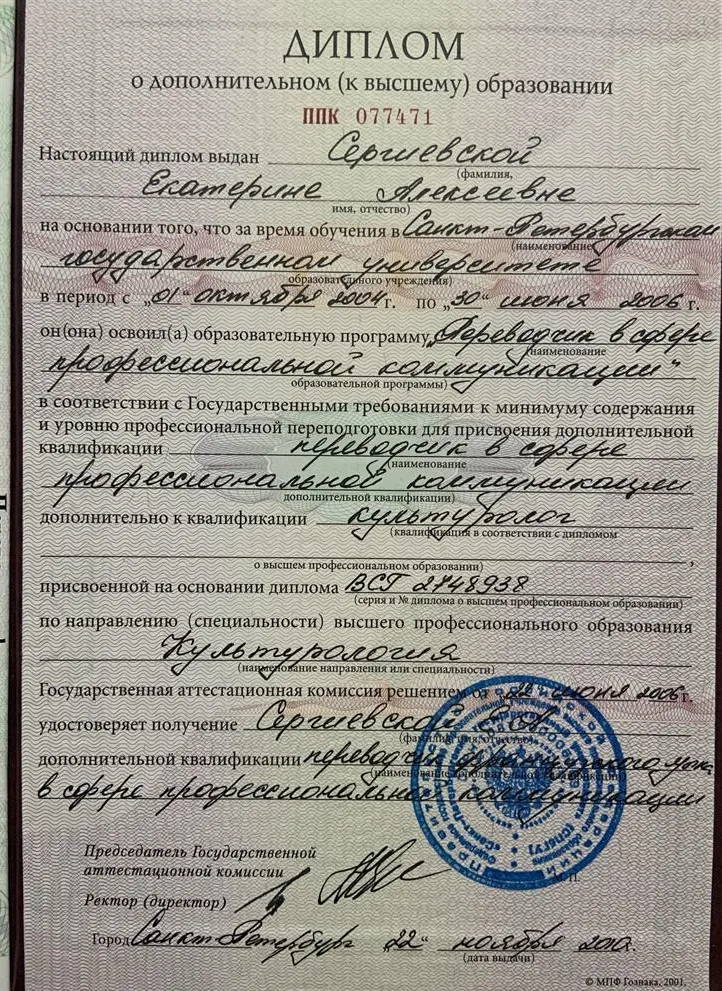 ДИПЛОМ
о дополнительном (к высшему) образовании
ППК 077471
Настоящий диплом выдан Сергиевской
(фамилия,
Екатерине Алексеевне
имя, отчество)
на основании того, что за время обучения в Санкт-Петербургском
(наименование
государственном университете
образовательного учреждения)
в период с „01“ октября 2004г. по „30“ июня 2006 г.
он(она) освоил(а) образовательную программу „Переводчик в сфере
(наименование
профессиональной коммуникации“
образовательной программы)
в соответствии с Государственными требованиями к минимуму содержания
и уровню профессиональной переподготовки для присвоения дополнительной
квалификации переводчик в сфере
(наименование
профессиональной коммуникации
дополнительной квалификации)
дополнительно к квалификации культуролог
(квалификация в соответствии с дипломом
,
о высшем профессиональном образовании)
присвоенной на основании диплома ВСГ 2748938
(серия и № диплома о высшем профессиональном образовании)
по направлению (специальности) высшего профессионального образования
Культурология
(наименование направления или специальности)
Государственная аттестационная комиссия решением от „22“ июня 2006г.
удостоверяет получение Сергиевской Е А
(фамилия, имя, отчество)
дополнительной квалификации переводчик французского языка
(наименование дополнительной квалификации)
в сфере профессиональной коммуникации
Председатель Государственной
аттестационной комиссии
М.П.
Ректор (директор)
Город Санкт-Петербург „22“ ноября 2010г.
(дата выдачи)
© МПФ Гознака, 2001.